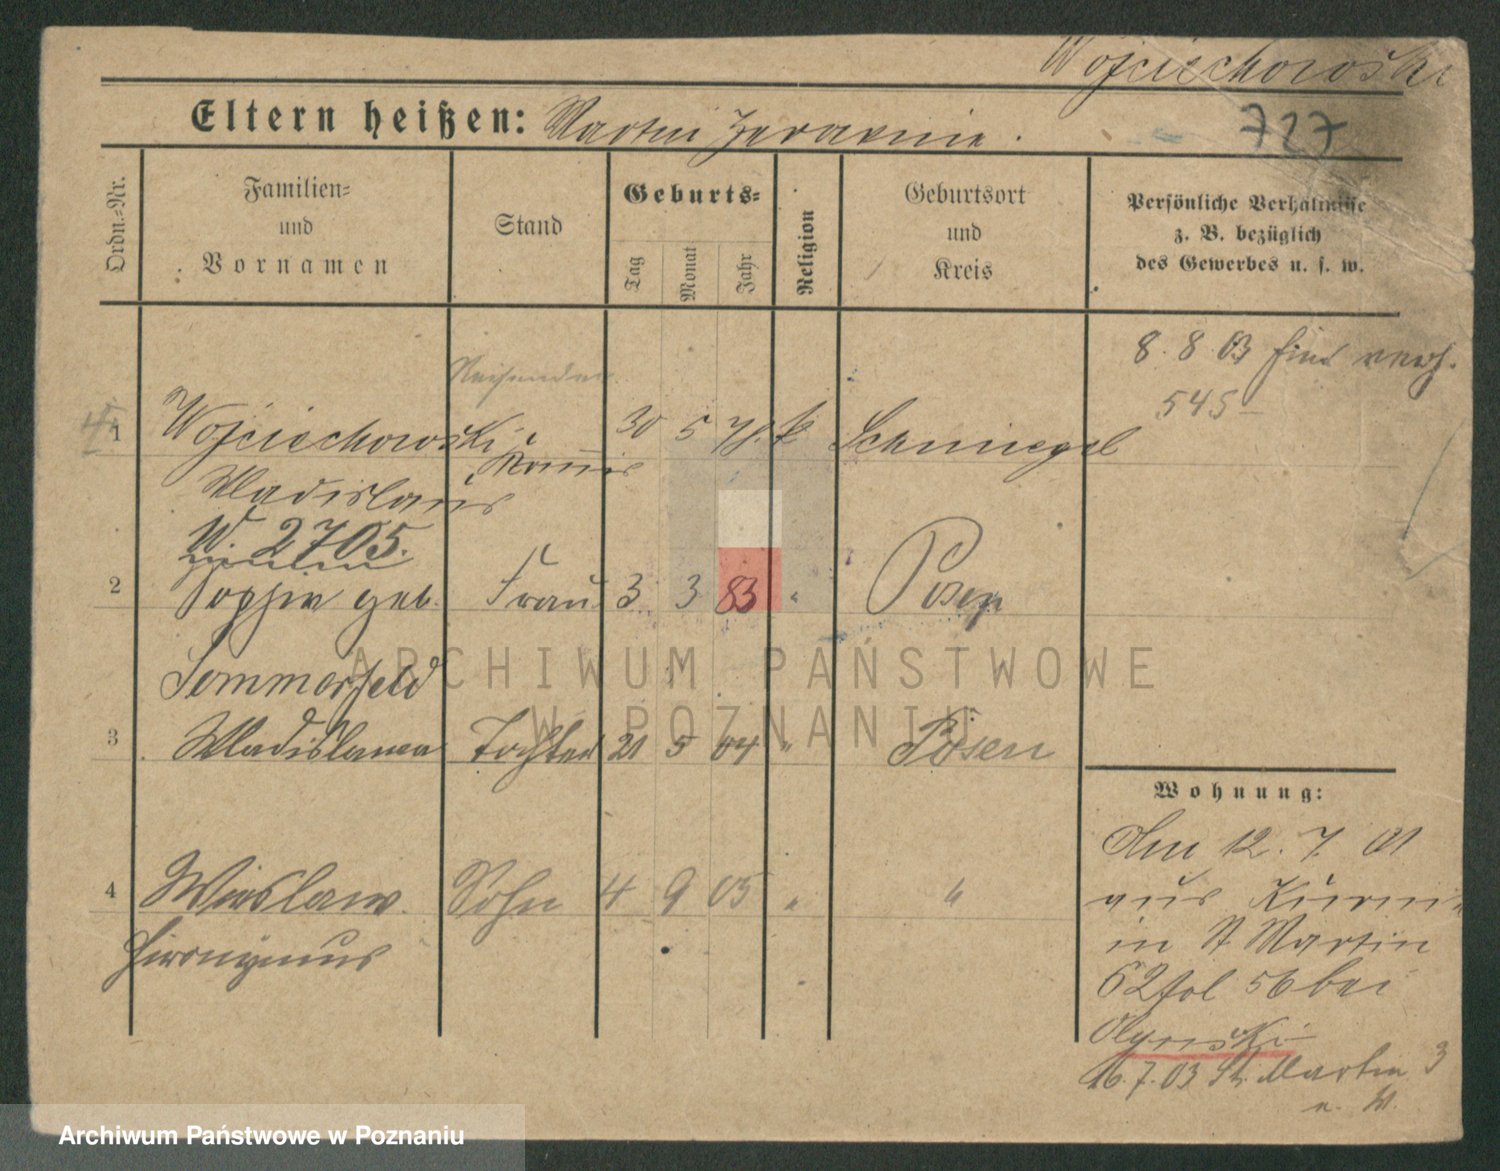 Wojciechowski
Eltern heißen: Martin
727
Ordn.=Nr.
Familien=
und
Vornamen
Stand
Geburts=
Tag
Monat
Jahr
Religion
Geburtsort
und
Kreis
Persönliche Verhältnisse
z. B. bezüglich
des Gewerbes u. s. w.
8. 8. 03
545
1 Wojciechowski 30 5 78. k Schmiegel
Wladislaus
W 2705.
2 Sophie geb. Frau 3 3 83 " Posen
Sommerfeld
3 Wladislawa Tochter 21 5 04 " Posen
4 Wieslaw Sohn 4 9 05 " "
Hieronymus
Wohnung:
Am 12. 7. 01
aus Kurnik
in St Martin
62 fol 56 bei
16. 7. 03 St. Martin 3
ARCHIWUM PAŃSTWOWE
W POZNANIU
Archiwum Państwowe w Poznaniu